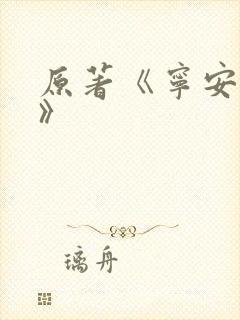 原著《寧安
》
璃舟